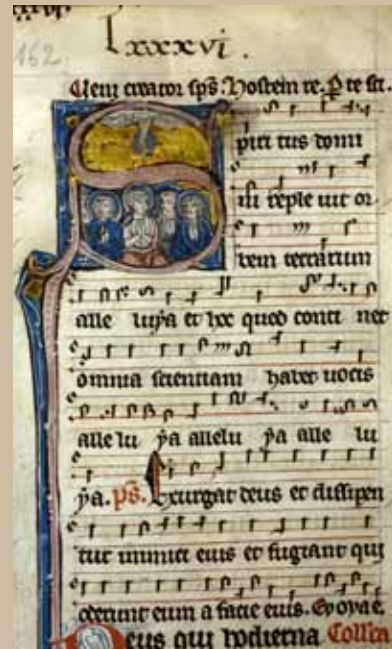 lxxxvi.
162
Veni creator sps. Hostem re. P te sit.
Spiri tus domi
ni reple uit or
bem terrarum
alle luya et hoc quod conti net
omnia scientiam habet uocis
alle lu ya allelu ya alle lu
ya. ps. Exurgat deus et dissipen
tur inimici eius et fugiant qui
oderunt eum a facie eius. Evovae.
Deus qui hodierna Collecta